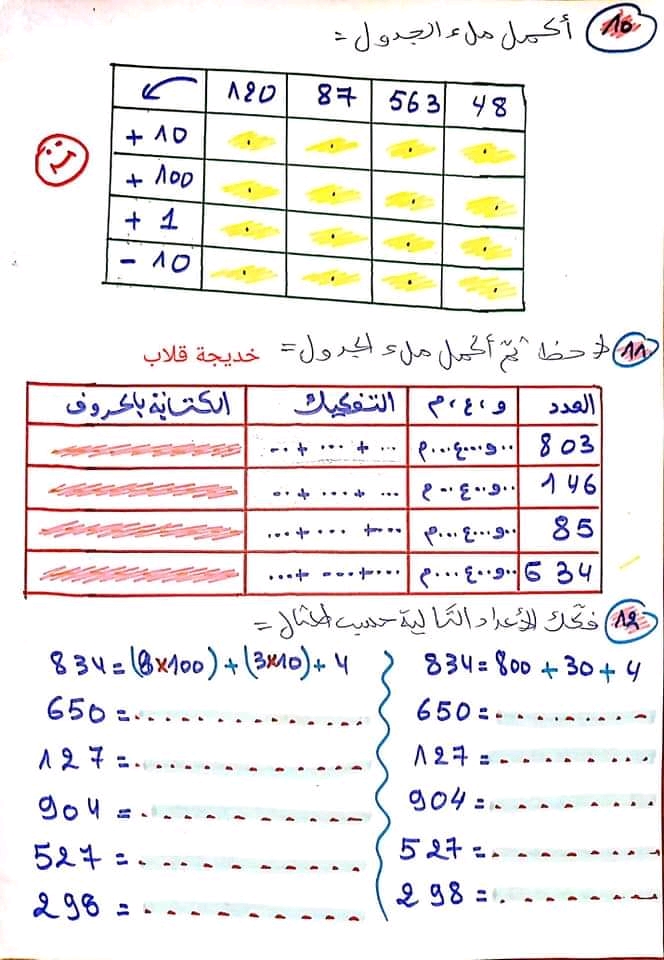 10 أكمل ملء الجدول =
120 87 563 48
+ 10 . . . .
+ 100 . . . .
+ 1 . . . .
- 10 . . . .
11 لاحظ ثمّ أكمل ملء الجدول = خديجة قلاب
العدد و، ع، م التفكيك الكتابة بالحروف
803 ...و...ع...م ... + ... + ...
146 ...و...ع...م ... + ... + ...
85 ...و...ع...م ... + ... + ...
634 ...و...ع...م ... + ... + ...
12 فكّك الأعداد التالية حسب المثال =
834 = (8×100) + (3×10) + 4 834 = 800 + 30 + 4
650 = .............. 650 = ...........
127 = .............. 127 = ...........
904 = .............. 904 = ...........
527 = .............. 527 = ...........
298 = .............. 298 = ...........